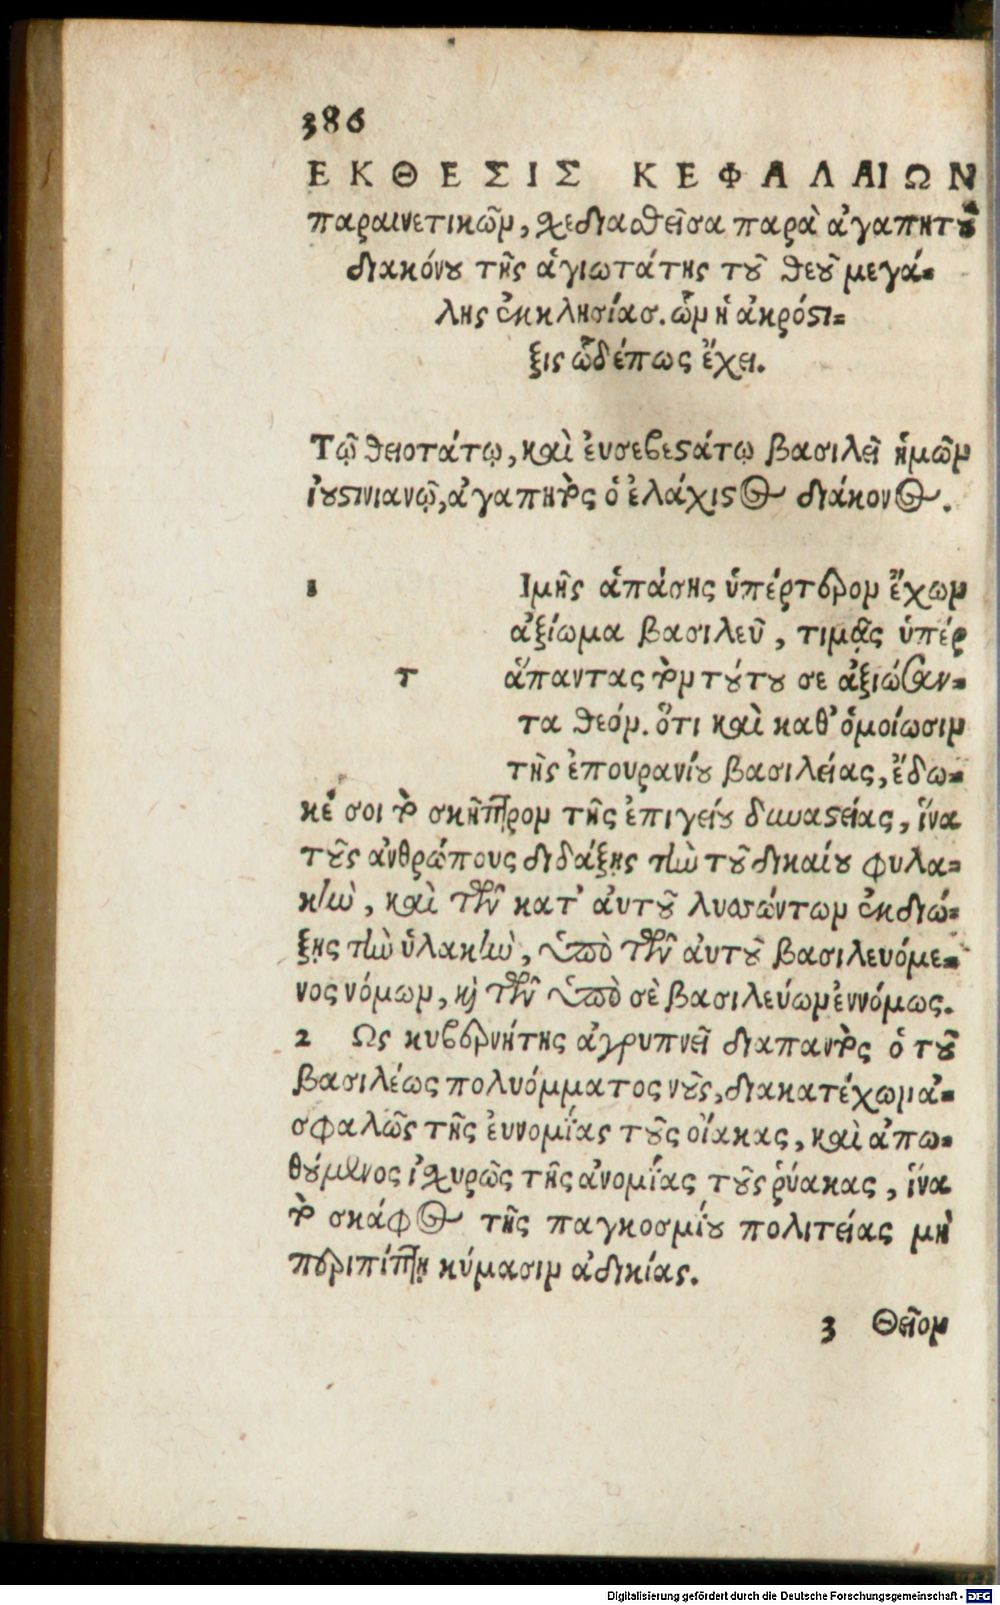 386
ΕΚΘΕΣΙΣ ΚΕΦΑΛΑΙΩΝ
παραινετικῶν, σχεδιασθεῖσα παρὰ ἀγαπητοῦ
διακόνου τῆς ἁγιωτάτης τοῦ θεοῦ μεγά-
λης ἐκκλησίας. ὧν ἡ ἀκρόστι-
ξις ὧδέ πως ἔχει.
Τῷ θειοτάτῳ, καὶ ἐυσεβεστάτῳ βασιλεῖ ἡμῶν
ἰουστινιανῷ, ἀγαπητὸς ὁ ἐλάχιστος διάκονος.
1 Ιμῆς ἁπάσης ὑπέρτερον ἔχων
ἀξίωμα βασιλεῦ, τιμᾷς ὑπέρ
τ ἅπαντας τὸν τούτου σε ἀξιώσαν-
τα θεόν. ὅτι καὶ καθ' ὁμοίωσιν
τῆς ἐπουρανίου βασιλείας, ἔδω-
κέ σοι τὸ σκῆπτρον τῆς ἐπιγείου δυναστείας, ἵνα
τοὺς ἀνθρώπους διδάξῃς τὴν τοῦ δικαίου φυλα-
κὴν, καὶ τῶν κατ' ἀυτοῦ λυσσώντων ἐκδιώ-
ξῃς τὴν ὑλακὴν, ὑπὸ τῶν ἀυτοῦ βασιλευόμε-
νος νόμων, καὶ τῶν ὑπὸ σὲ βασιλεύων ἐννόμως.
2 Ως κυβερνήτης ἀγρυπνεῖ διαπαντὸς ὁ τοῦ
βασιλέως πολυόμματος νοῦς, διακατέχων ἀ-
σφαλῶς τῆς ἐυνομίας τοὺς οἴακας, καὶ ἀπω-
θούμενος ἰσχυρῶς τῆς ἀνομίας τοὺς ῥύακας, ἵνα
τὸ σκάφος τῆς παγκοσμίου πολιτείας μὴ
περιπίπτῃ κύμασιν ἀδικίας.
3 Θεῖον
Digitalisierung gefördert durch die Deutsche Forschungsgemeinschaft - DFG